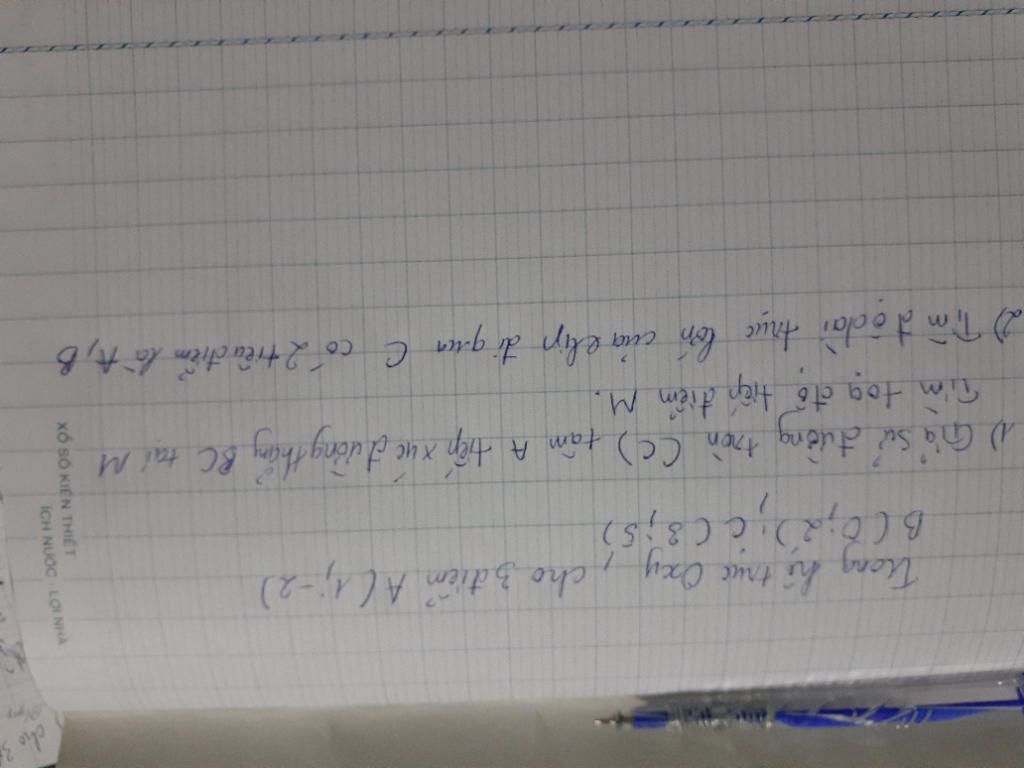 Trong hệ trục Oxy, cho 3 điểm A(1;-2)
B(0;2); C(3;5)
1) Giả sử đường tròn (C) tâm A tiếp xúc đường thẳng BC tại M
Tìm toạ độ tiếp điểm M.
2) Tìm độ dài trục lớn của elip đi qua C có 2 tiêu điểm là A, B
XỔ SỐ KIẾN THIẾT
ÍCH NƯỚC - LỢI NHÀ
cho 3